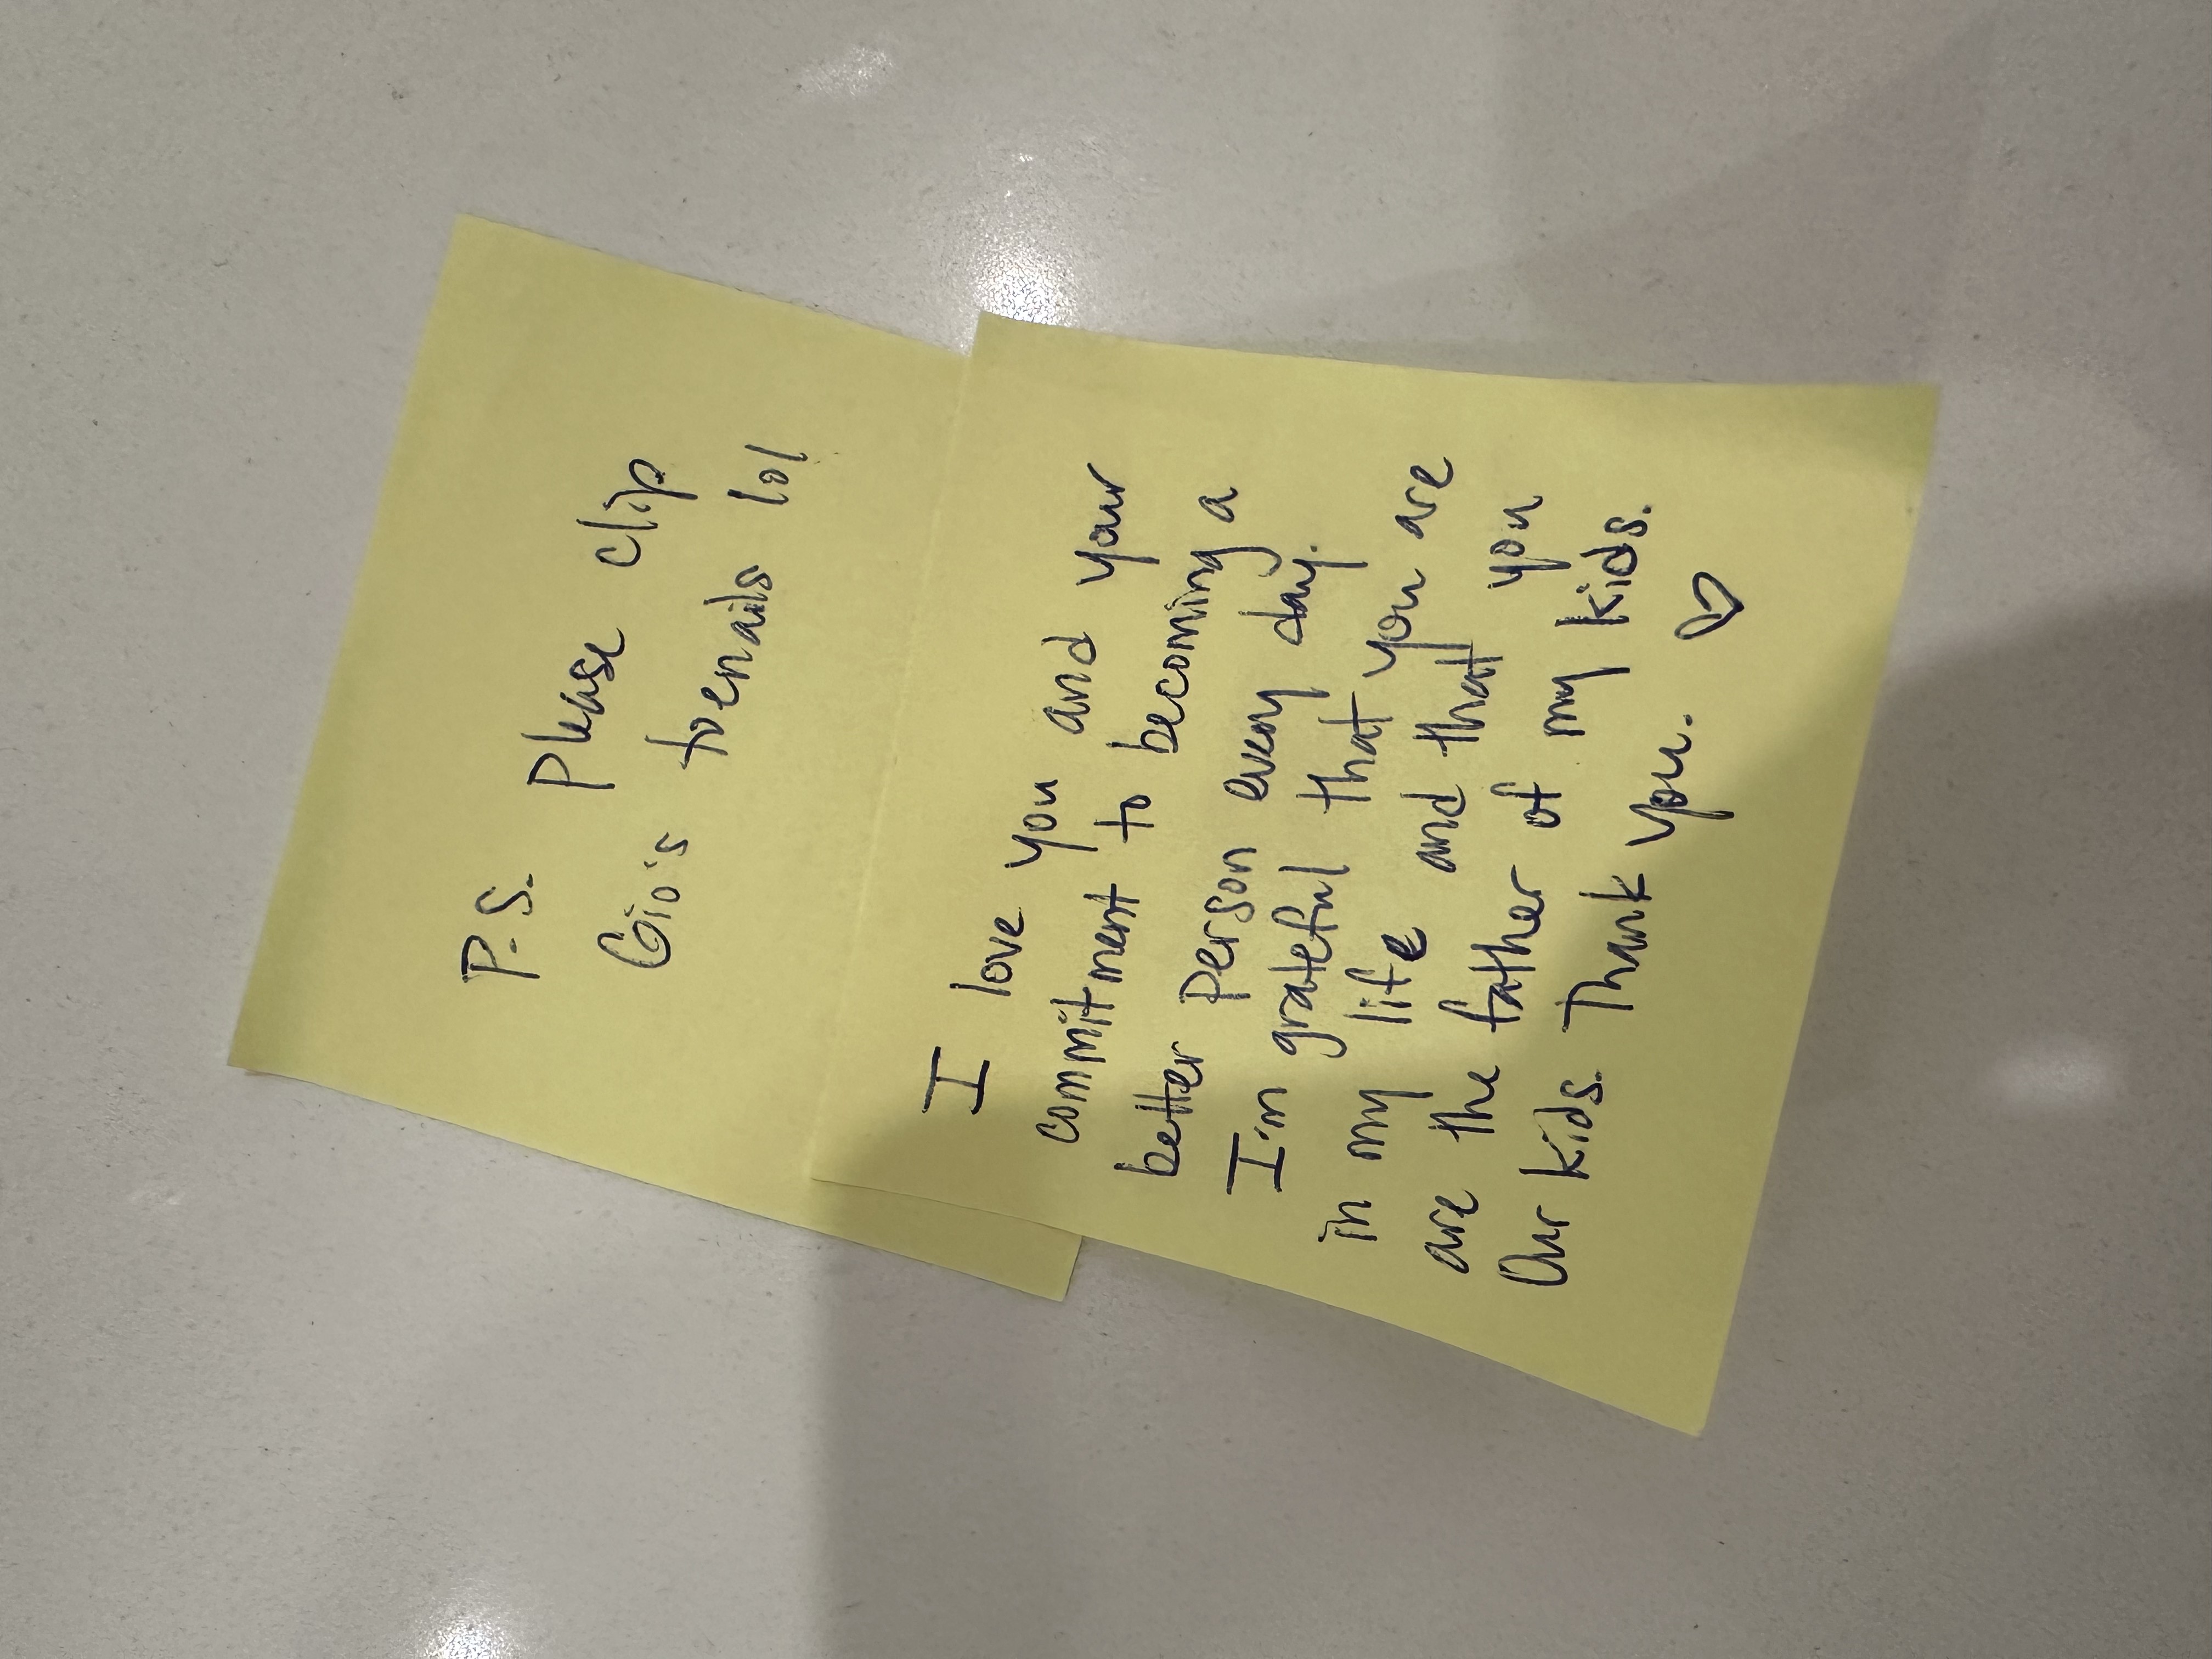 P.S. Please clip
Gio's toenails lol
I love you and your
commitment to becoming a
better person every day.
I'm grateful that you are
in my life and that you
are the father of my kids.
Our kids. Thank you. ♡